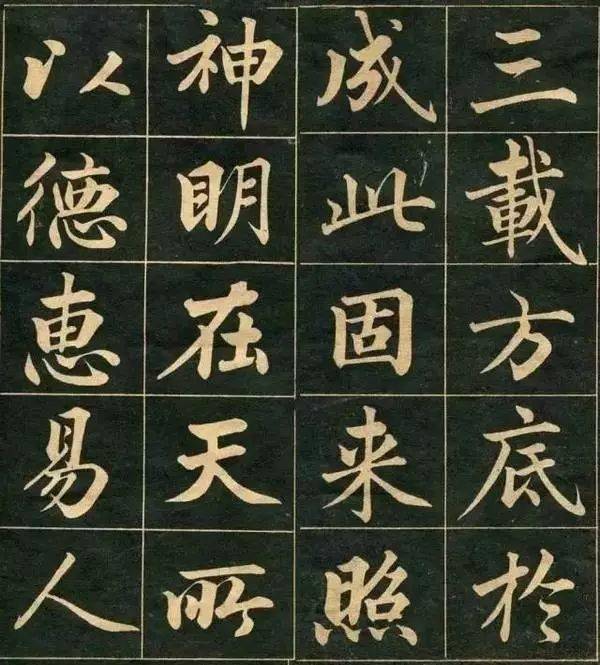 三載方底於
成此固来照
神明在天所
以德惠易人